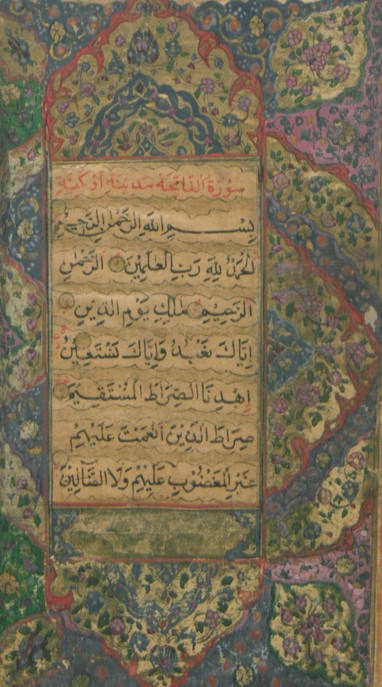 سورة الفاتحة مدينة أو مكية
بِسْمِ اللهِ الرَّحْمٰنِ الرَّحِيْمِ
اَلْحَمْدُ لِلّٰهِ رَبِّ الْعٰلَمِيْنَ الرَّحْمٰنِ
الرَّحِيْمِ مٰلِكِ يَوْمِ الدِّيْنِ
اِيَّاكَ نَعْبُدُ وَاِيَّاكَ نَسْتَعِيْنُ
اِهْدِنَا الصِّرَاطَ الْمُسْتَقِيْمَ
صِرَاطَ الَّذِيْنَ اَنْعَمْتَ عَلَيْهِمْ
غَيْرِ الْمَغْضُوْبِ عَلَيْهِمْ وَلَا الضَّآلِّيْنَ